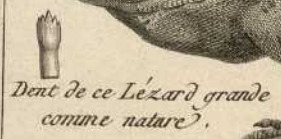 Dent de ce Lézard grande
comme nature.